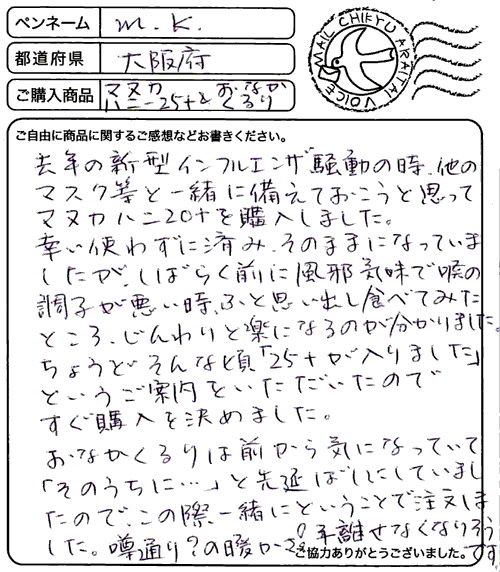 ペンネーム M.K.
都道府県 大阪府
ご購入商品 マヌカハニー25+とおなかくるり
MAIL CHIKYU ARAITAI VOICE
ご自由に商品に関するご感想などお書きください。
去年の新型インフルエンザ騒動の時、他の
マスク等と一緒に備えておこうと思って
マヌカハニ20+を購入しました。
幸い使わずに済み、そのままになっていま
したが、しばらく前に風邪気味で喉の
調子が悪い時、ふと思い出し食べてみた
ところ、じんわりと楽になるのが分かりました。
ちょうどそんな頃「25+が入りました」
というご案内をいただいたので
すぐ購入を決めました。
おなかくるりは前から気になっていて
「そのうちに…」と先延ばしにしていまし
たので、この際、一緒にということで注文しま
した。噂通り?の暖かさ!手離せなくなりそうです
ご協力ありがとうございました。